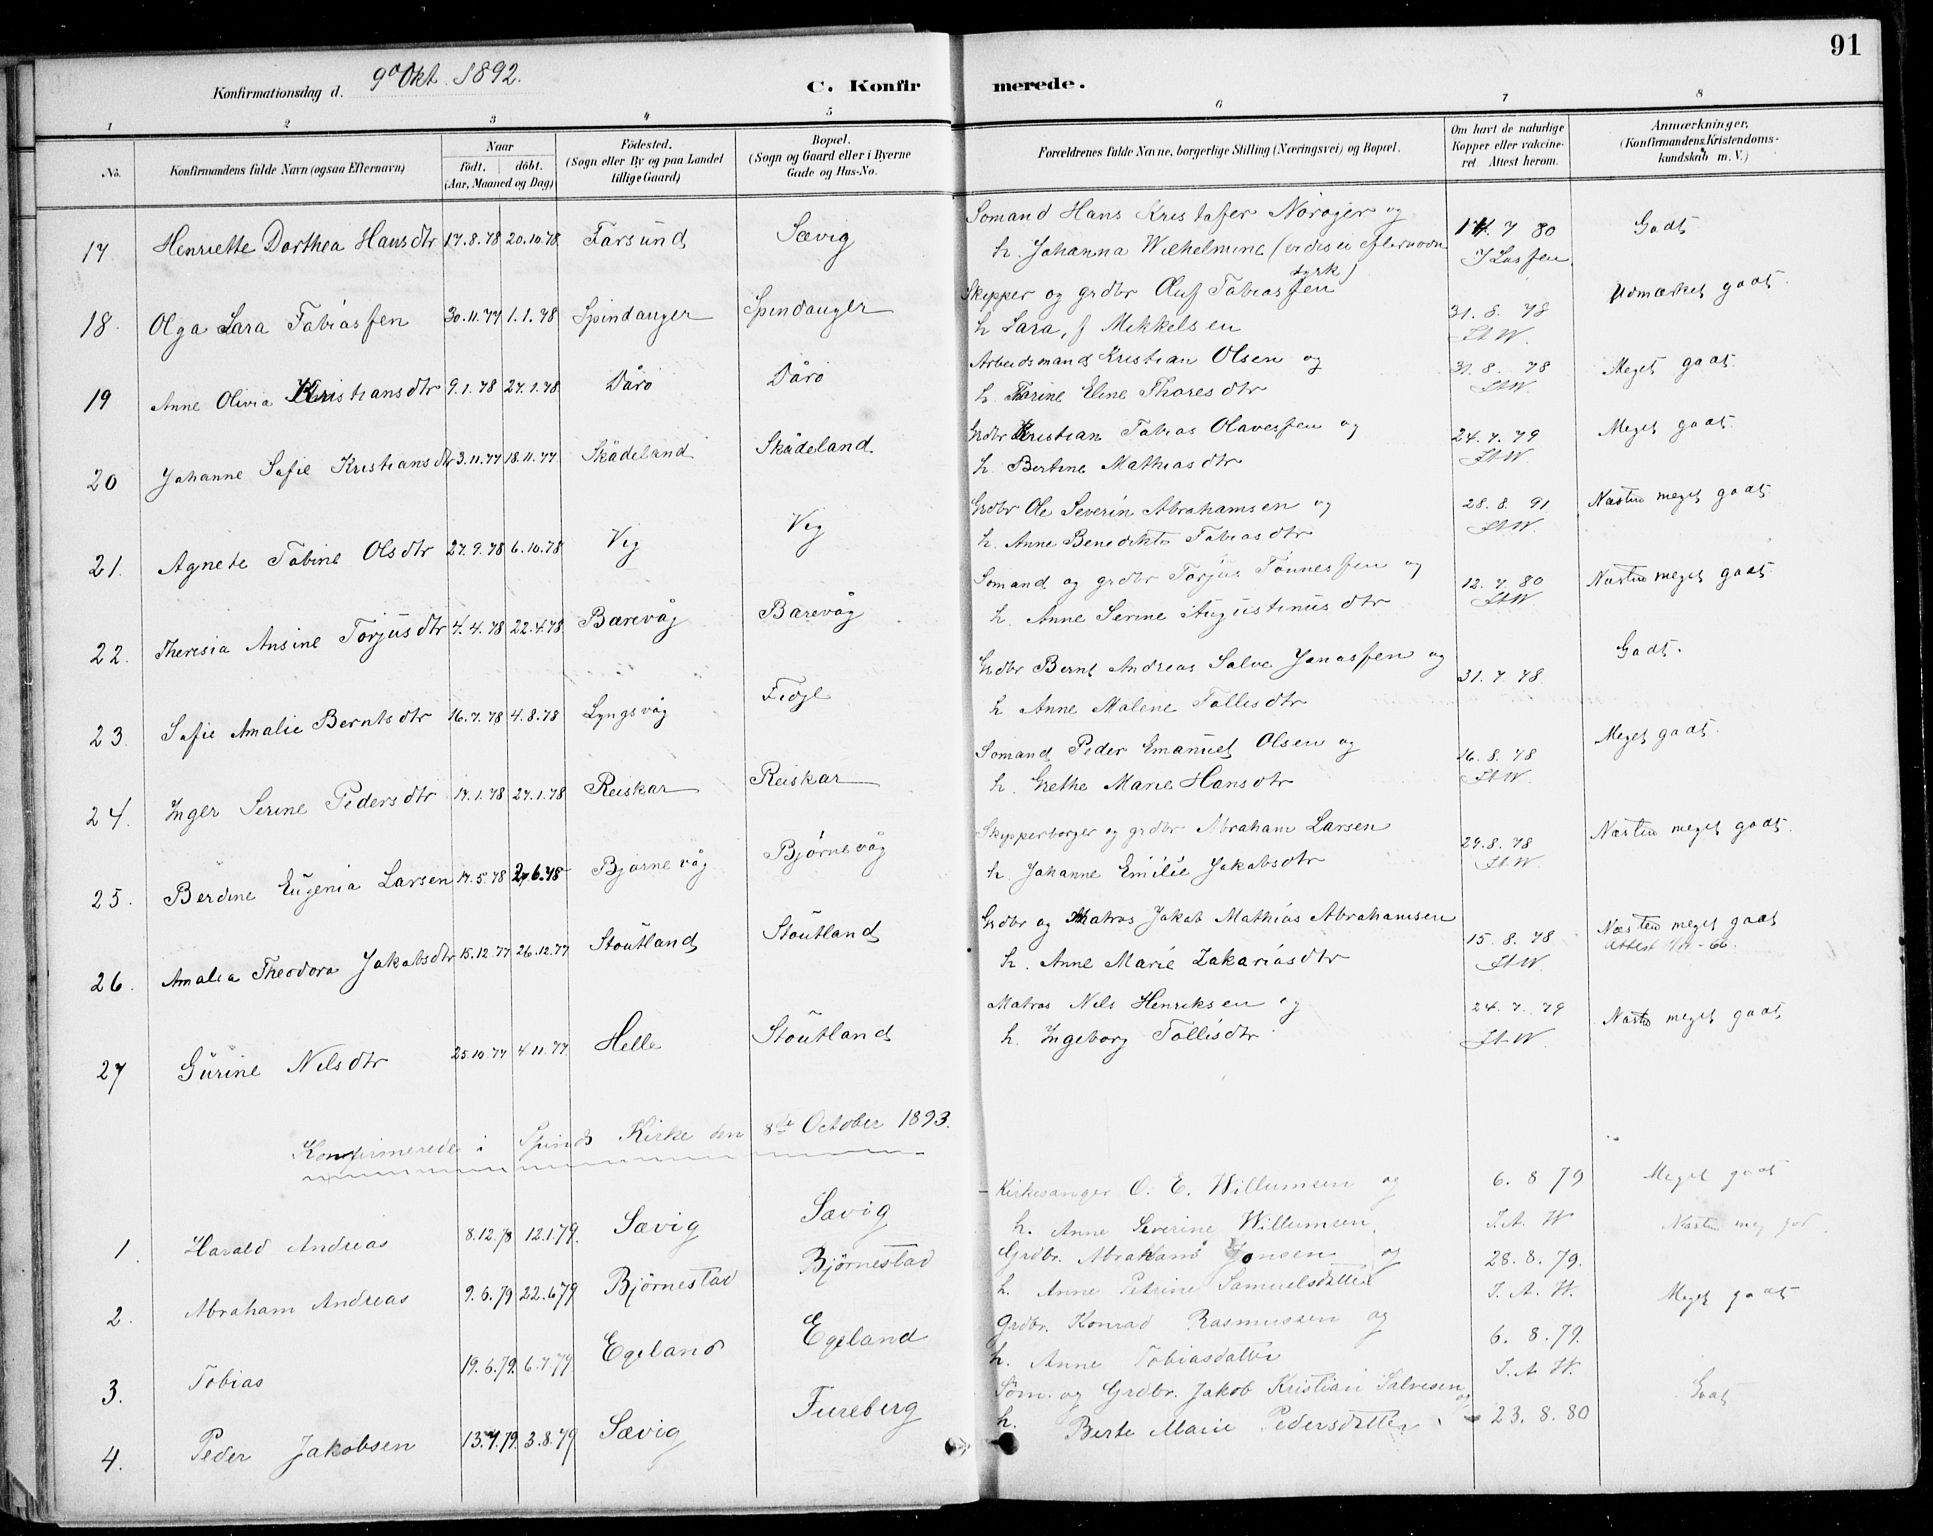 91
Konfirmationsdag d. 9 Okt. 1892.
C. Konfirmerede.
1 2 3 4 5 6 7 8
No.
Konfirmandens fulde Navn (ogsaa Efternavn)
Naar
födt. döbt.
(Aar, Maaned og Dag)
Födested.
(Sogn eller By og paa Landet
tillige Gaard)
Bopæl.
(Sogn og Gaard eller i Byerne
Gade og Hus-No.
Forældrenes fulde Navne, borgerlige Stilling (Næringsvei) og Bopæl.
Om havt de naturlige
Kopper eller vakcine-
ret. Attest herom.
Anmærkninger,
(Konfirmandens Kristendoms-
kundskab m. V.)
17 Henriette Dorthea Hansdtr 17.8.78 20.10.78 Farsund Sævig Sømand Hans Kristofer og 80 Godt
h. Johanna Wilhelmine
18. Olga Lara Tobiassen 30.11.77 1.1.78 Spindanger Spindanger Skipper og grdbr Oluf Tobiassen 31.8.78 Udmærket godt.
h Lara, f Mekkelsen StW.
19 Anne Olivia Kristiansdtr 9.1.78 27.1.78 Dårø Dårø Arbeidsmand Kristian Olsen og 31.8.78 Meget godt.
h. Eline Tharesdtr StW.
20 Johanne Sofie Kristiansdtr 3.11.77 18.11.77 Skådeland Skådeland. Grdbr Kristian Tobias Olavessen og 24.7.79 Meget godt.
h. Bertine Mathiasdtr StW.
21. Agnete Tobine Olsdtr 27.9.78 6.10.78 Vig Vig Grdbr Ole Severin Abrahamsen og 28.8.91 Næsten meget godt.
h. Anne Benedikte Tobiasdtr StW.
22. Theresia Ansine Torjusdtr 4.4.78 22.4.78 Bærevåg Bærevåg Sømand og grdbr Torjus Tønnessen og 12.7.80 Næsten meget godt.
h. Anne Serine Augustinusdtr StW
23. Sofie Amalie Berntsdtr 16.7.78 4.8.78 Lyngsvåg Grdbr Bernt Andreas Salve Jonassen og 31.7.78. Godt.
h Anne Malene Tollisdtr
24. Inger Serine Pedersdtr 14.1.78 27.1.78 Reiskar Reiskar Sømand Peder Emanuel Olsen og 16.8.78 Meget godt.
h. Grethe Marie Hansdtr StW.
25. Berdine Eugenia Larsen 14.5.78 Bjørnevåg Bjørnevåg Skipperborger og grdbr Abraham Larsen 29.8.78 Næsten meget godt.
h. Johanne Emilie Jakobsdtr StW.
26. Amalia Theodora Jakobsdtr 15.12.77 26.12.77 Stoutland Stoutland Grdbr og Matros Jakob Mathias Abrahamsen 15.8.78 Næsten meget godt
h. Anne Marie Zakariasdtr StW.
27 Gurine Nilsdtr 25.10.77 4.11.77 Helle Stoutland Matros Nils Henriksen og 24.7.79 Næsten meget godt
h. Ingeborg Tollisdtr. StW.
Konfirmerede i Spinds Kirke den 8de October 1893.
1. Harald Andreas 8.12.78 12.1.79. Sævig Sævig Kirkesanger O. E. Willumsen og 6. 8 79 Meget godt
h. Anne Severine Willumsen. I. A. W
2. Abraham Andreas 9.6.79 22.6.79 Bjørnestad Bjørnestad Grdbr. Abraham Jonsen og 28.8.79. Næsten meg god.
h. Anne Petrine Samuelsdatter I. A. W.
3. Tobias 19.6.79. 6.7.79 Egeland Egeland Grdbr. Konrad Rasmussen og 6. 8.79. Meget godt
h. Anne Tobiasdatter I. A. W.
4. Peder Jakobsen 13.7.79. 3.8.79 Sævig Fureberg Søm. og Grdbr. Jakob Kristian Salvesen og 23.8.80 Godt
h. Berte Marie Pedersdatter.